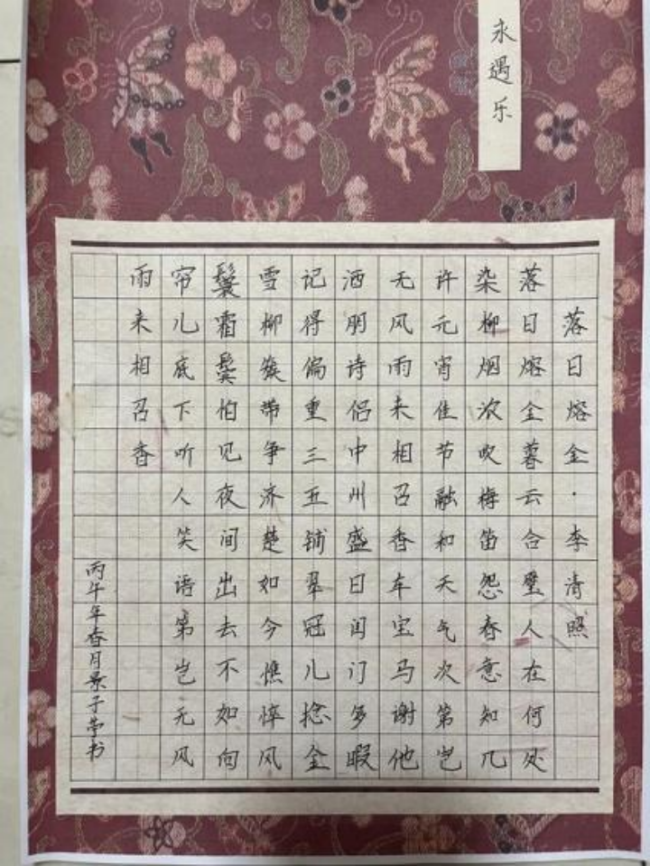 永遇乐
落日熔金·李清照
落日熔金暮云合璧人在何处
染柳烟浓吹梅笛怨春意知几
许元宵佳节融和天气次第岂
无风雨来相召香车宝马谢他
酒朋诗侣中州盛日闺门多暇
记得偏重三五铺翠冠儿捻金
雪柳簇带争济楚如今憔悴风
鬟霜鬓怕见夜间出去不如向
帘儿底下听人笑语第岂无风
雨来相召香
丙午年春月景子书